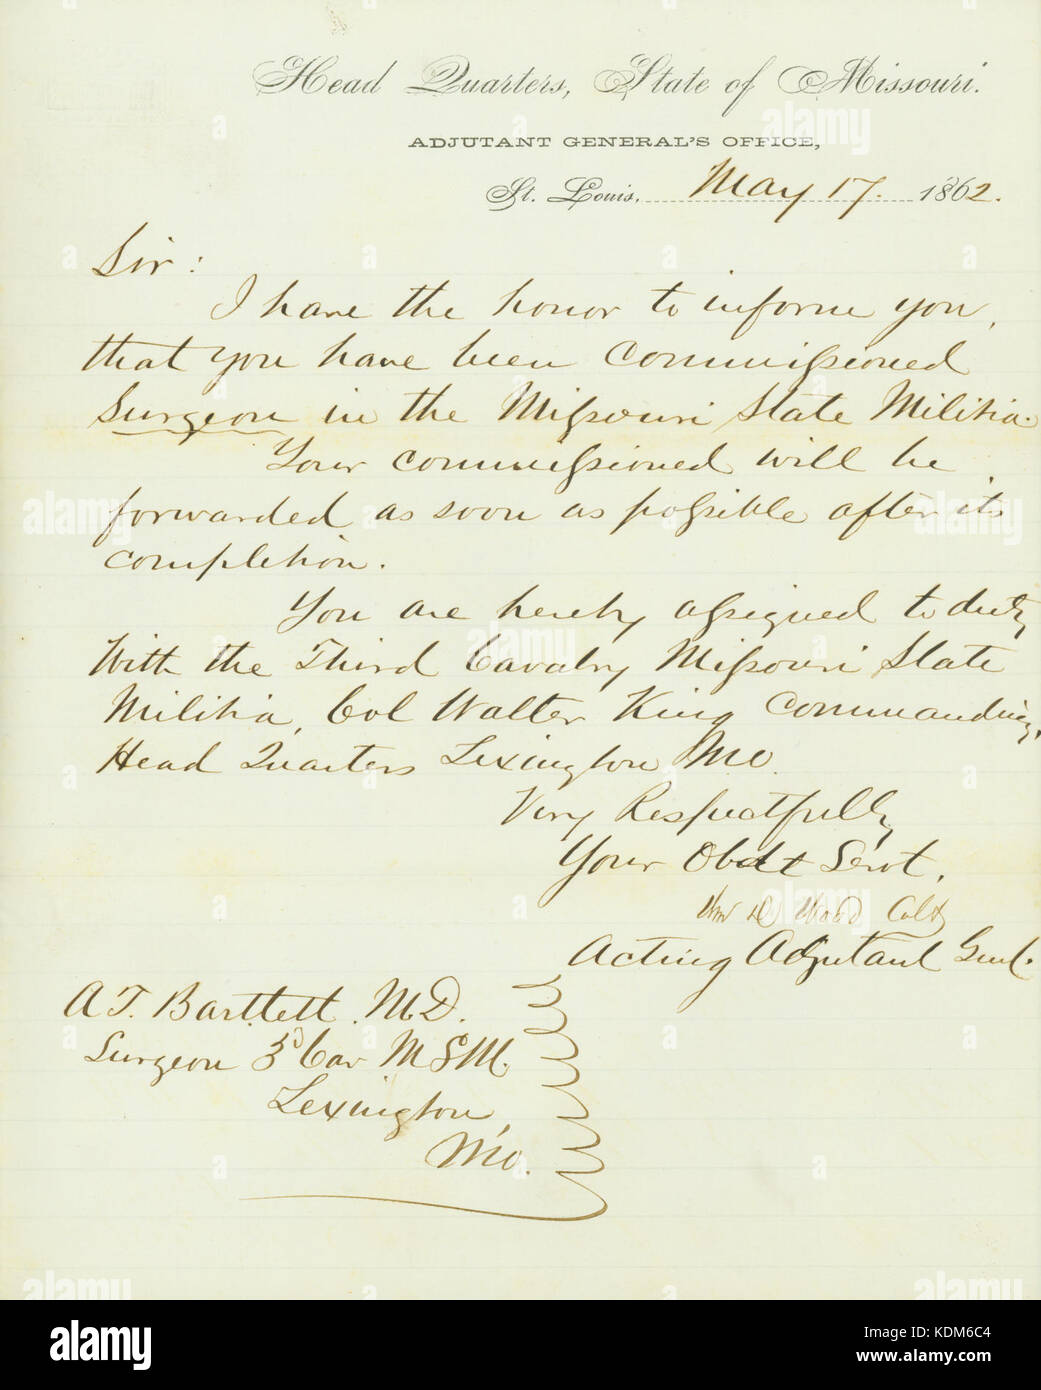 Head Quarters, State of Missouri.
ADJUTANT GENERAL'S OFFICE,
St. Louis, May 17. 1862.
Sir:
I have the honor to inform you,
that you have been Commissioned
Surgeon in the Missouri State Militia.
Your Commissioned will be
forwarded as soon as possible after its
completion.
You are hereby assigned to duty
With the Third Cavalry Missouri State
Militia, Col Walter King Commanding,
Head Quarters Lexington Mo.
Very Respectfully
Your Obdt Servt.
Wm D Wood Col &
Acting Adjutant Genl.
A. T. Bartlett. M.D.
Surgeon 3d Cav M S M.
Lexington,
Mo.
alamy
Image ID: KDM6C4
www.alamy.com